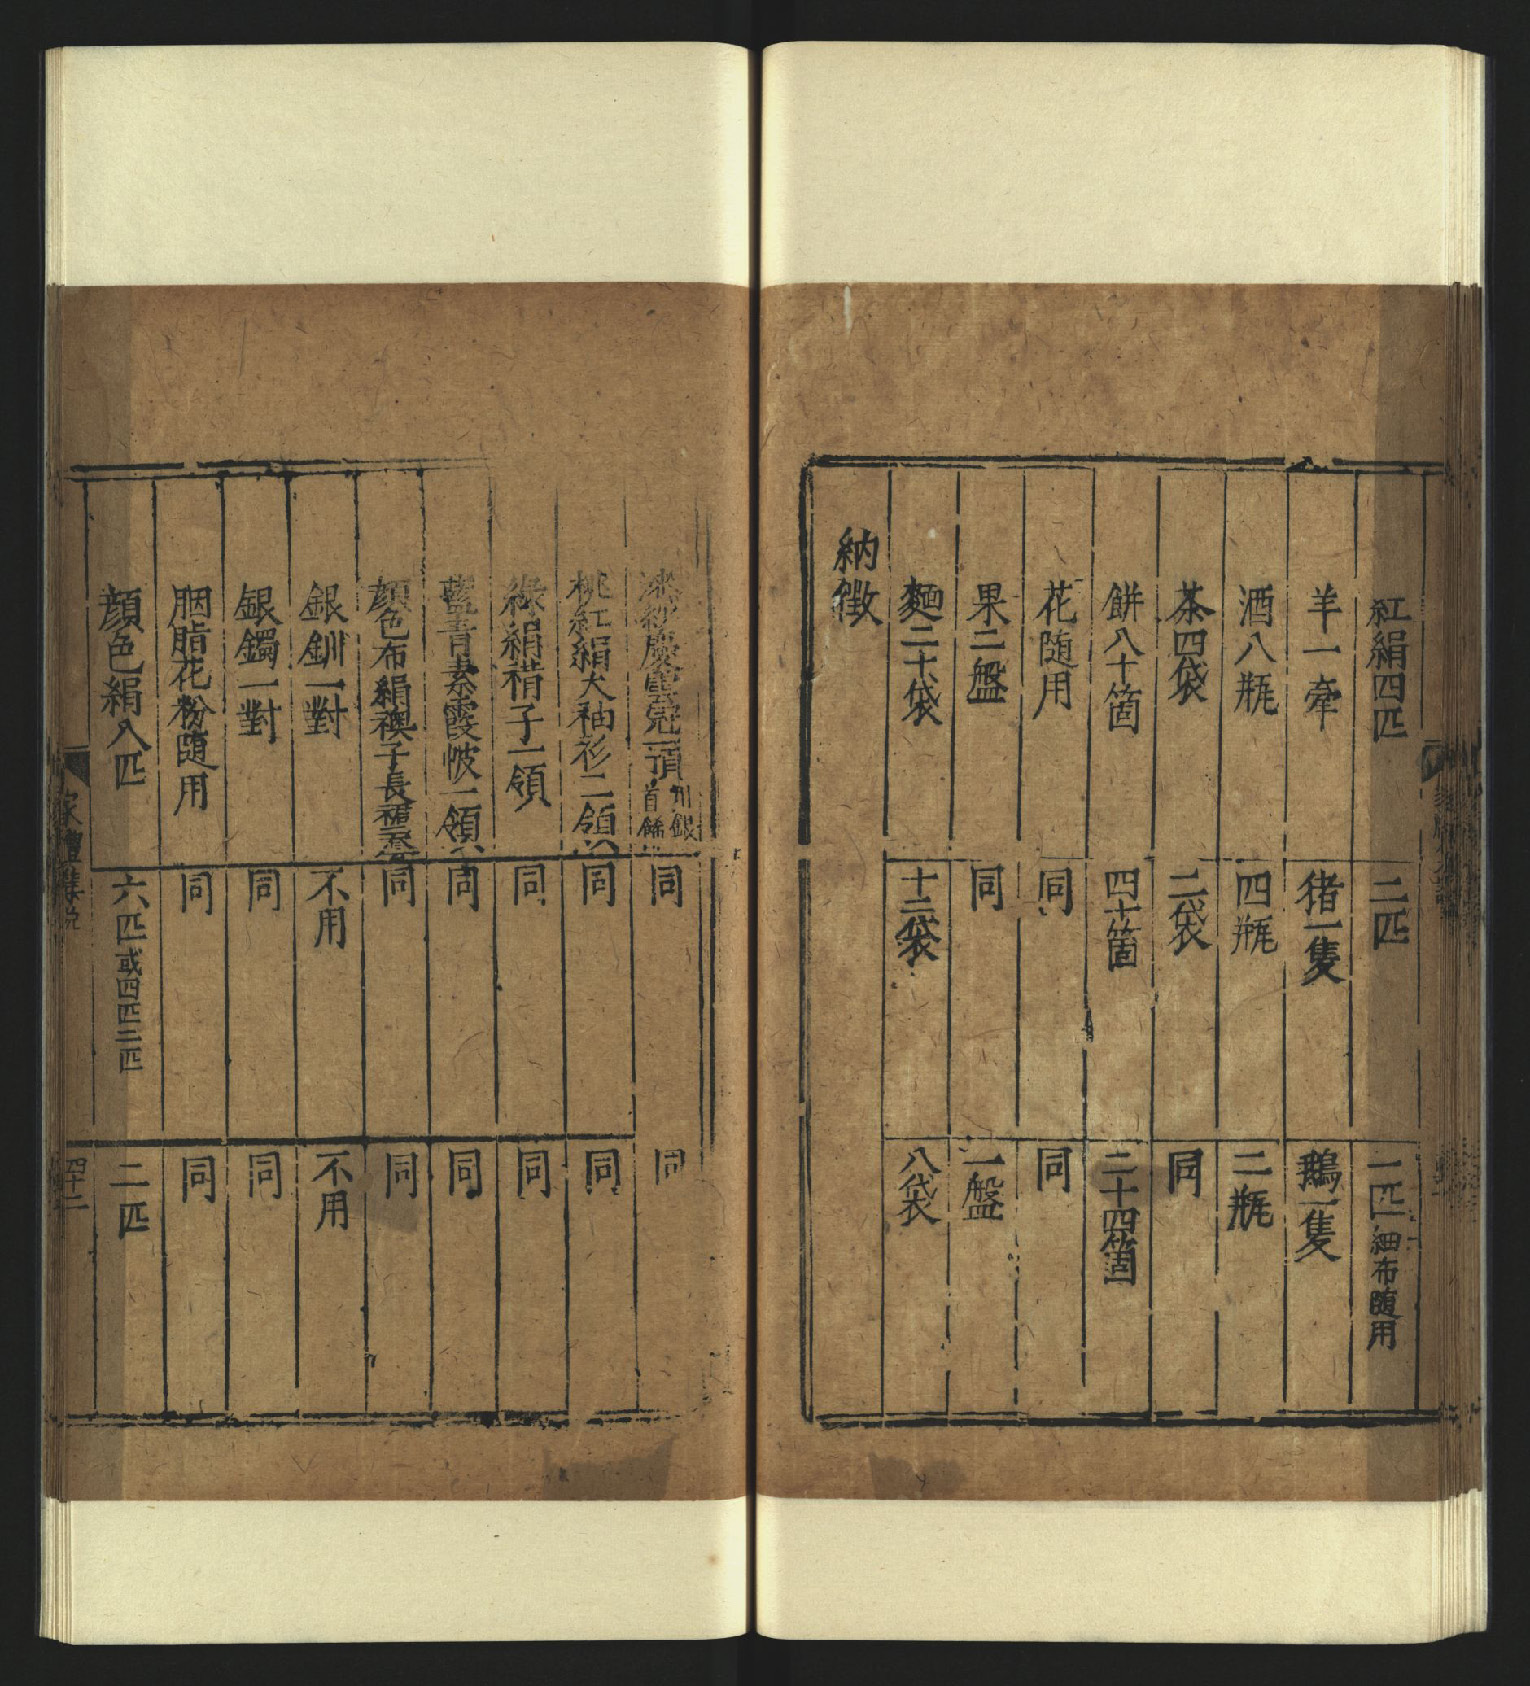 紅絹四匹 二匹 一匹細布隨用
羊一牽 猪一隻 鵝一隻
酒八瓶 四瓶 二瓶
茶四袋 二袋 同
餅八十箇 四十箇 二十四箇
花隨用 同 同
果二盤 同 一盤
麵二十袋 十二袋 八袋
納徴
漆紗慶雲冠一頂 首飾 同 同
桃紅絹大袖衫二領 同 同
綠絹褙子一領 同 同
藍青素霞帔一領 同 同
顔色布絹襖子長裙 同 同
銀釧一對 不用 不用
銀鐲一對 同 同
胭脂花粉隨用 同 同
顔色絹八匹 六匹或四匹三匹 二匹
家禮 四十二